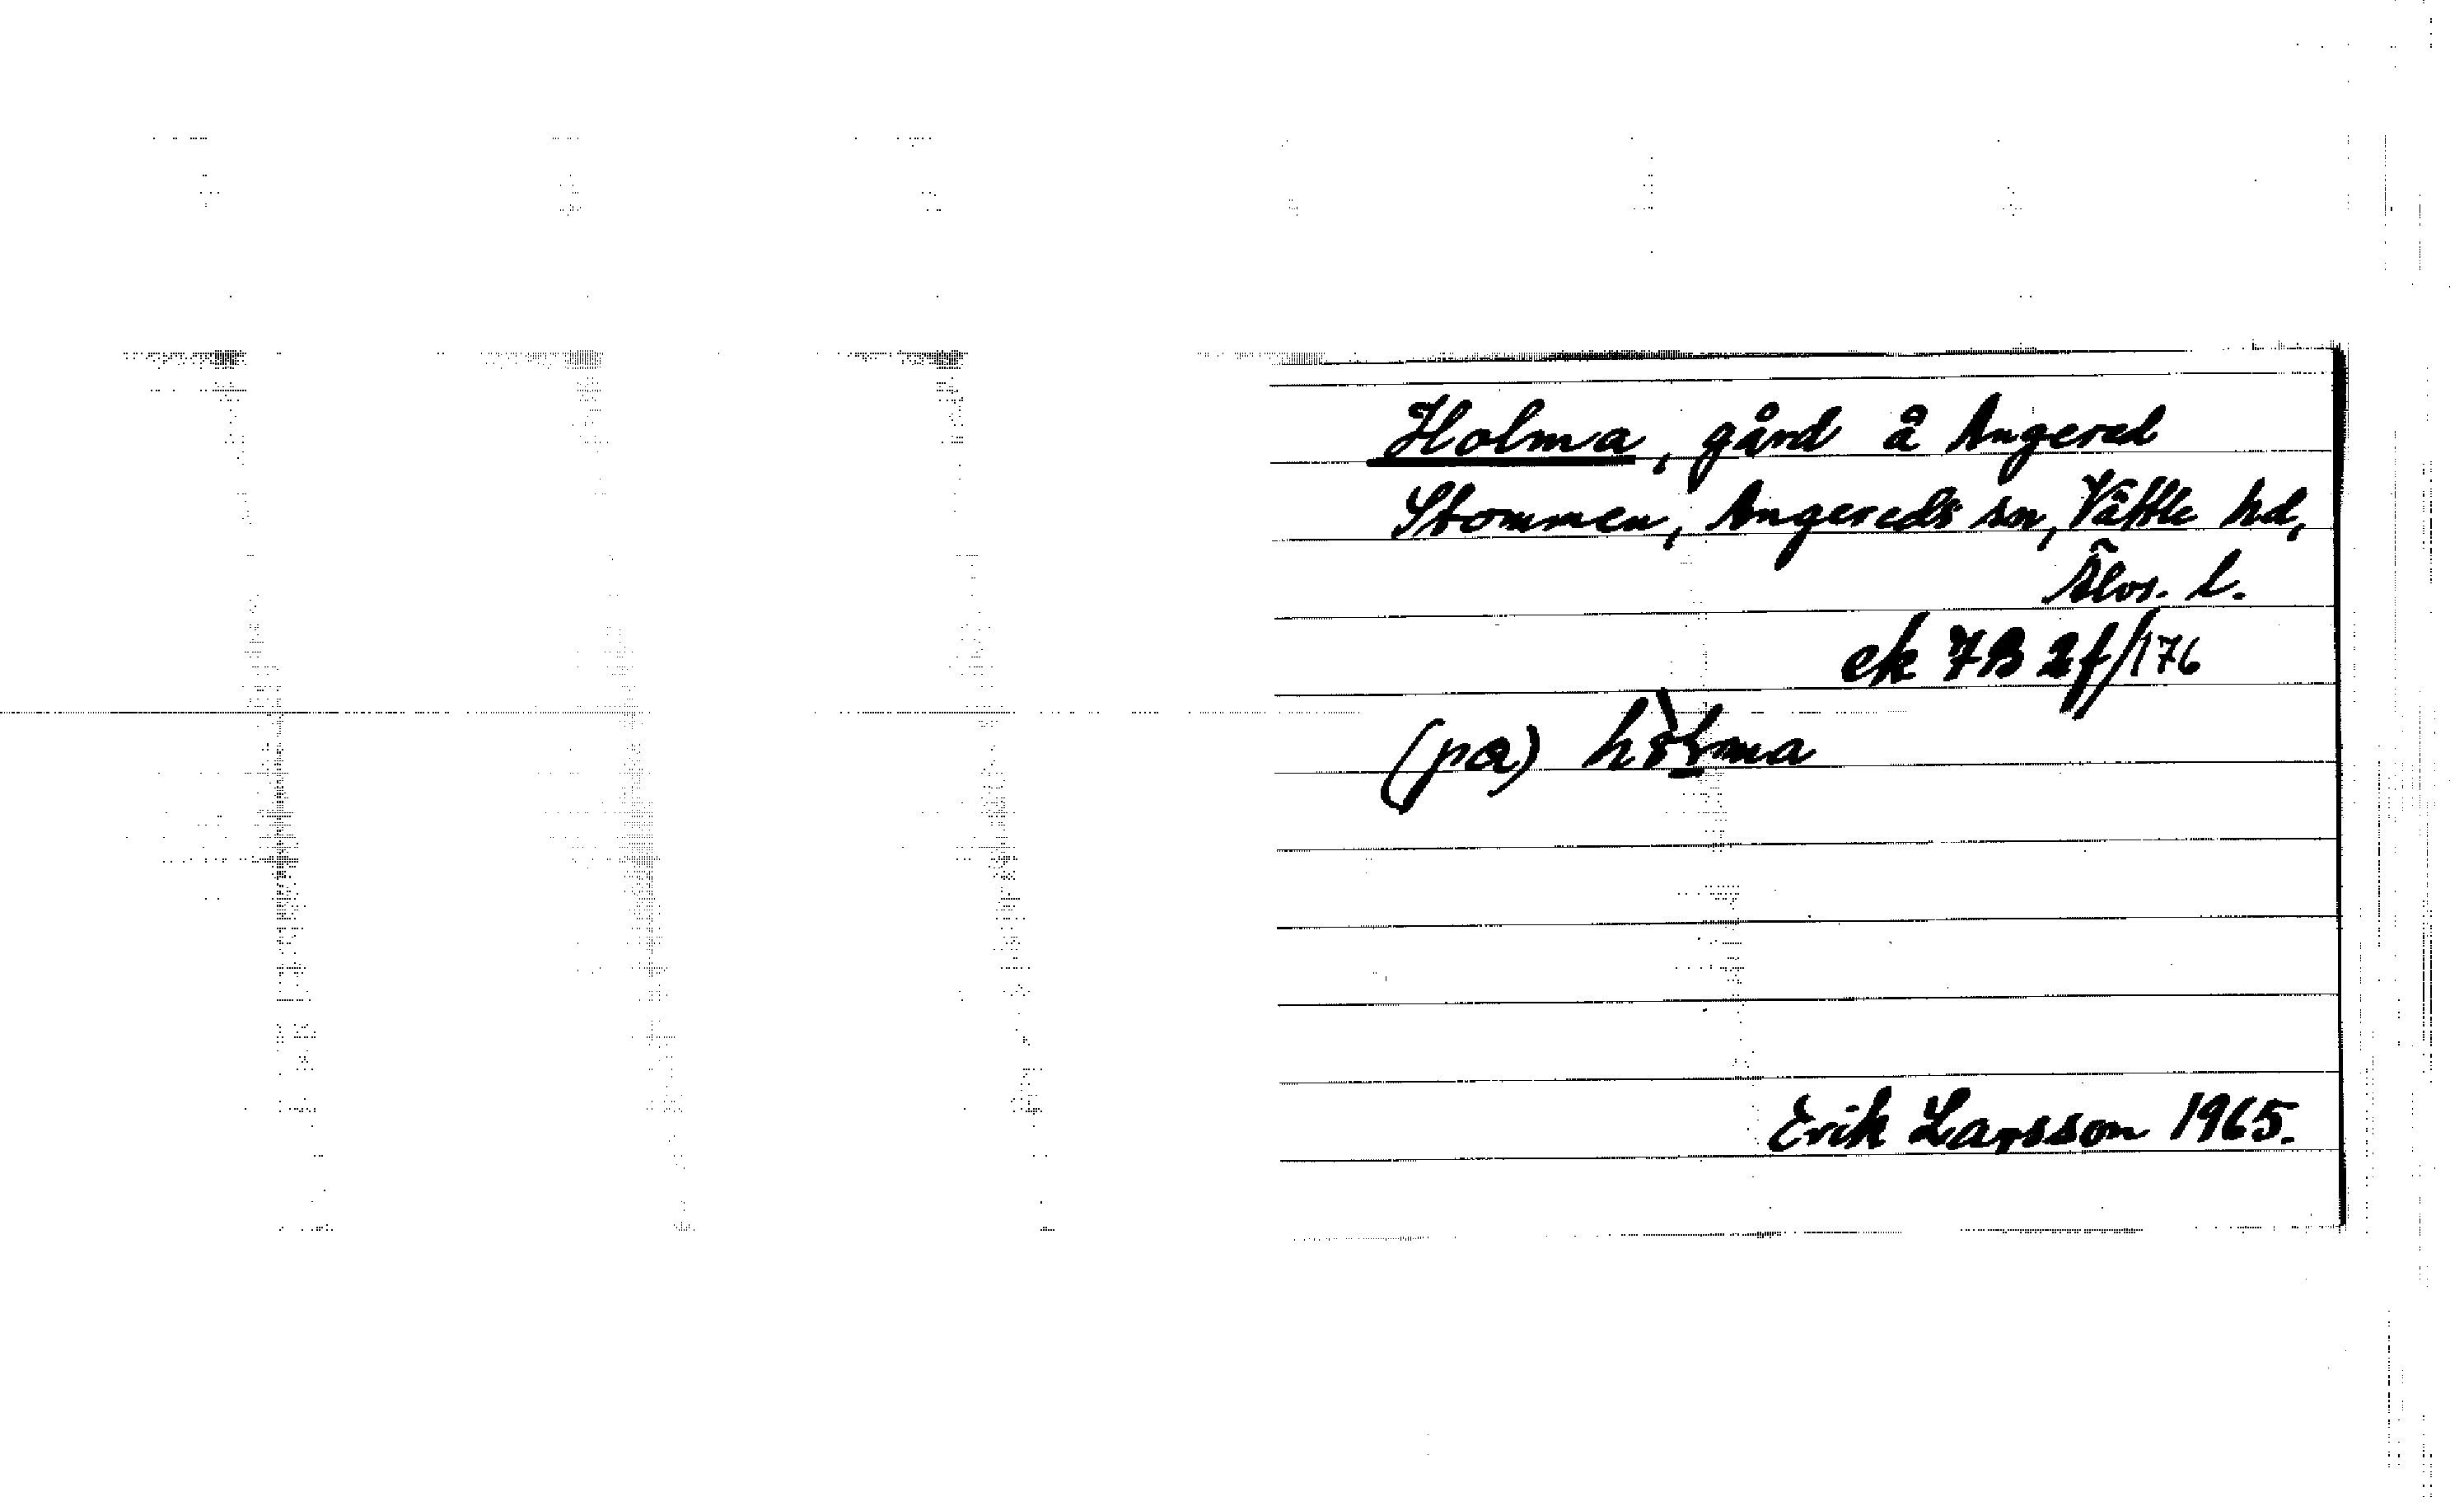 Holma, gård å Angered
Stommen, Angereds sn, Vättle hd,
Älvs. l.
ek 7B 2f/176
(pa)
Erik Larsson 1965.